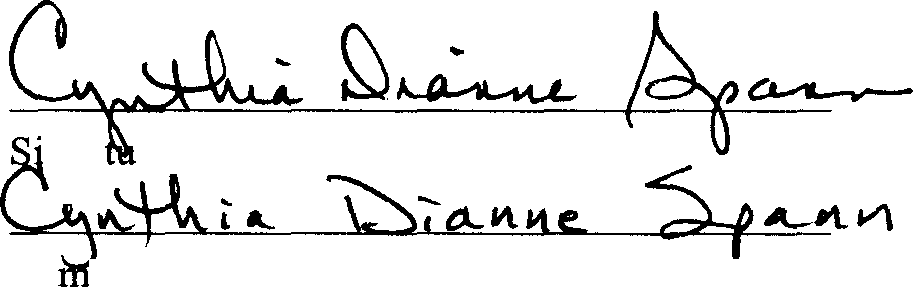 Cynthia Dianne Spann
Si tu
Cynthia Dianne Spann
m